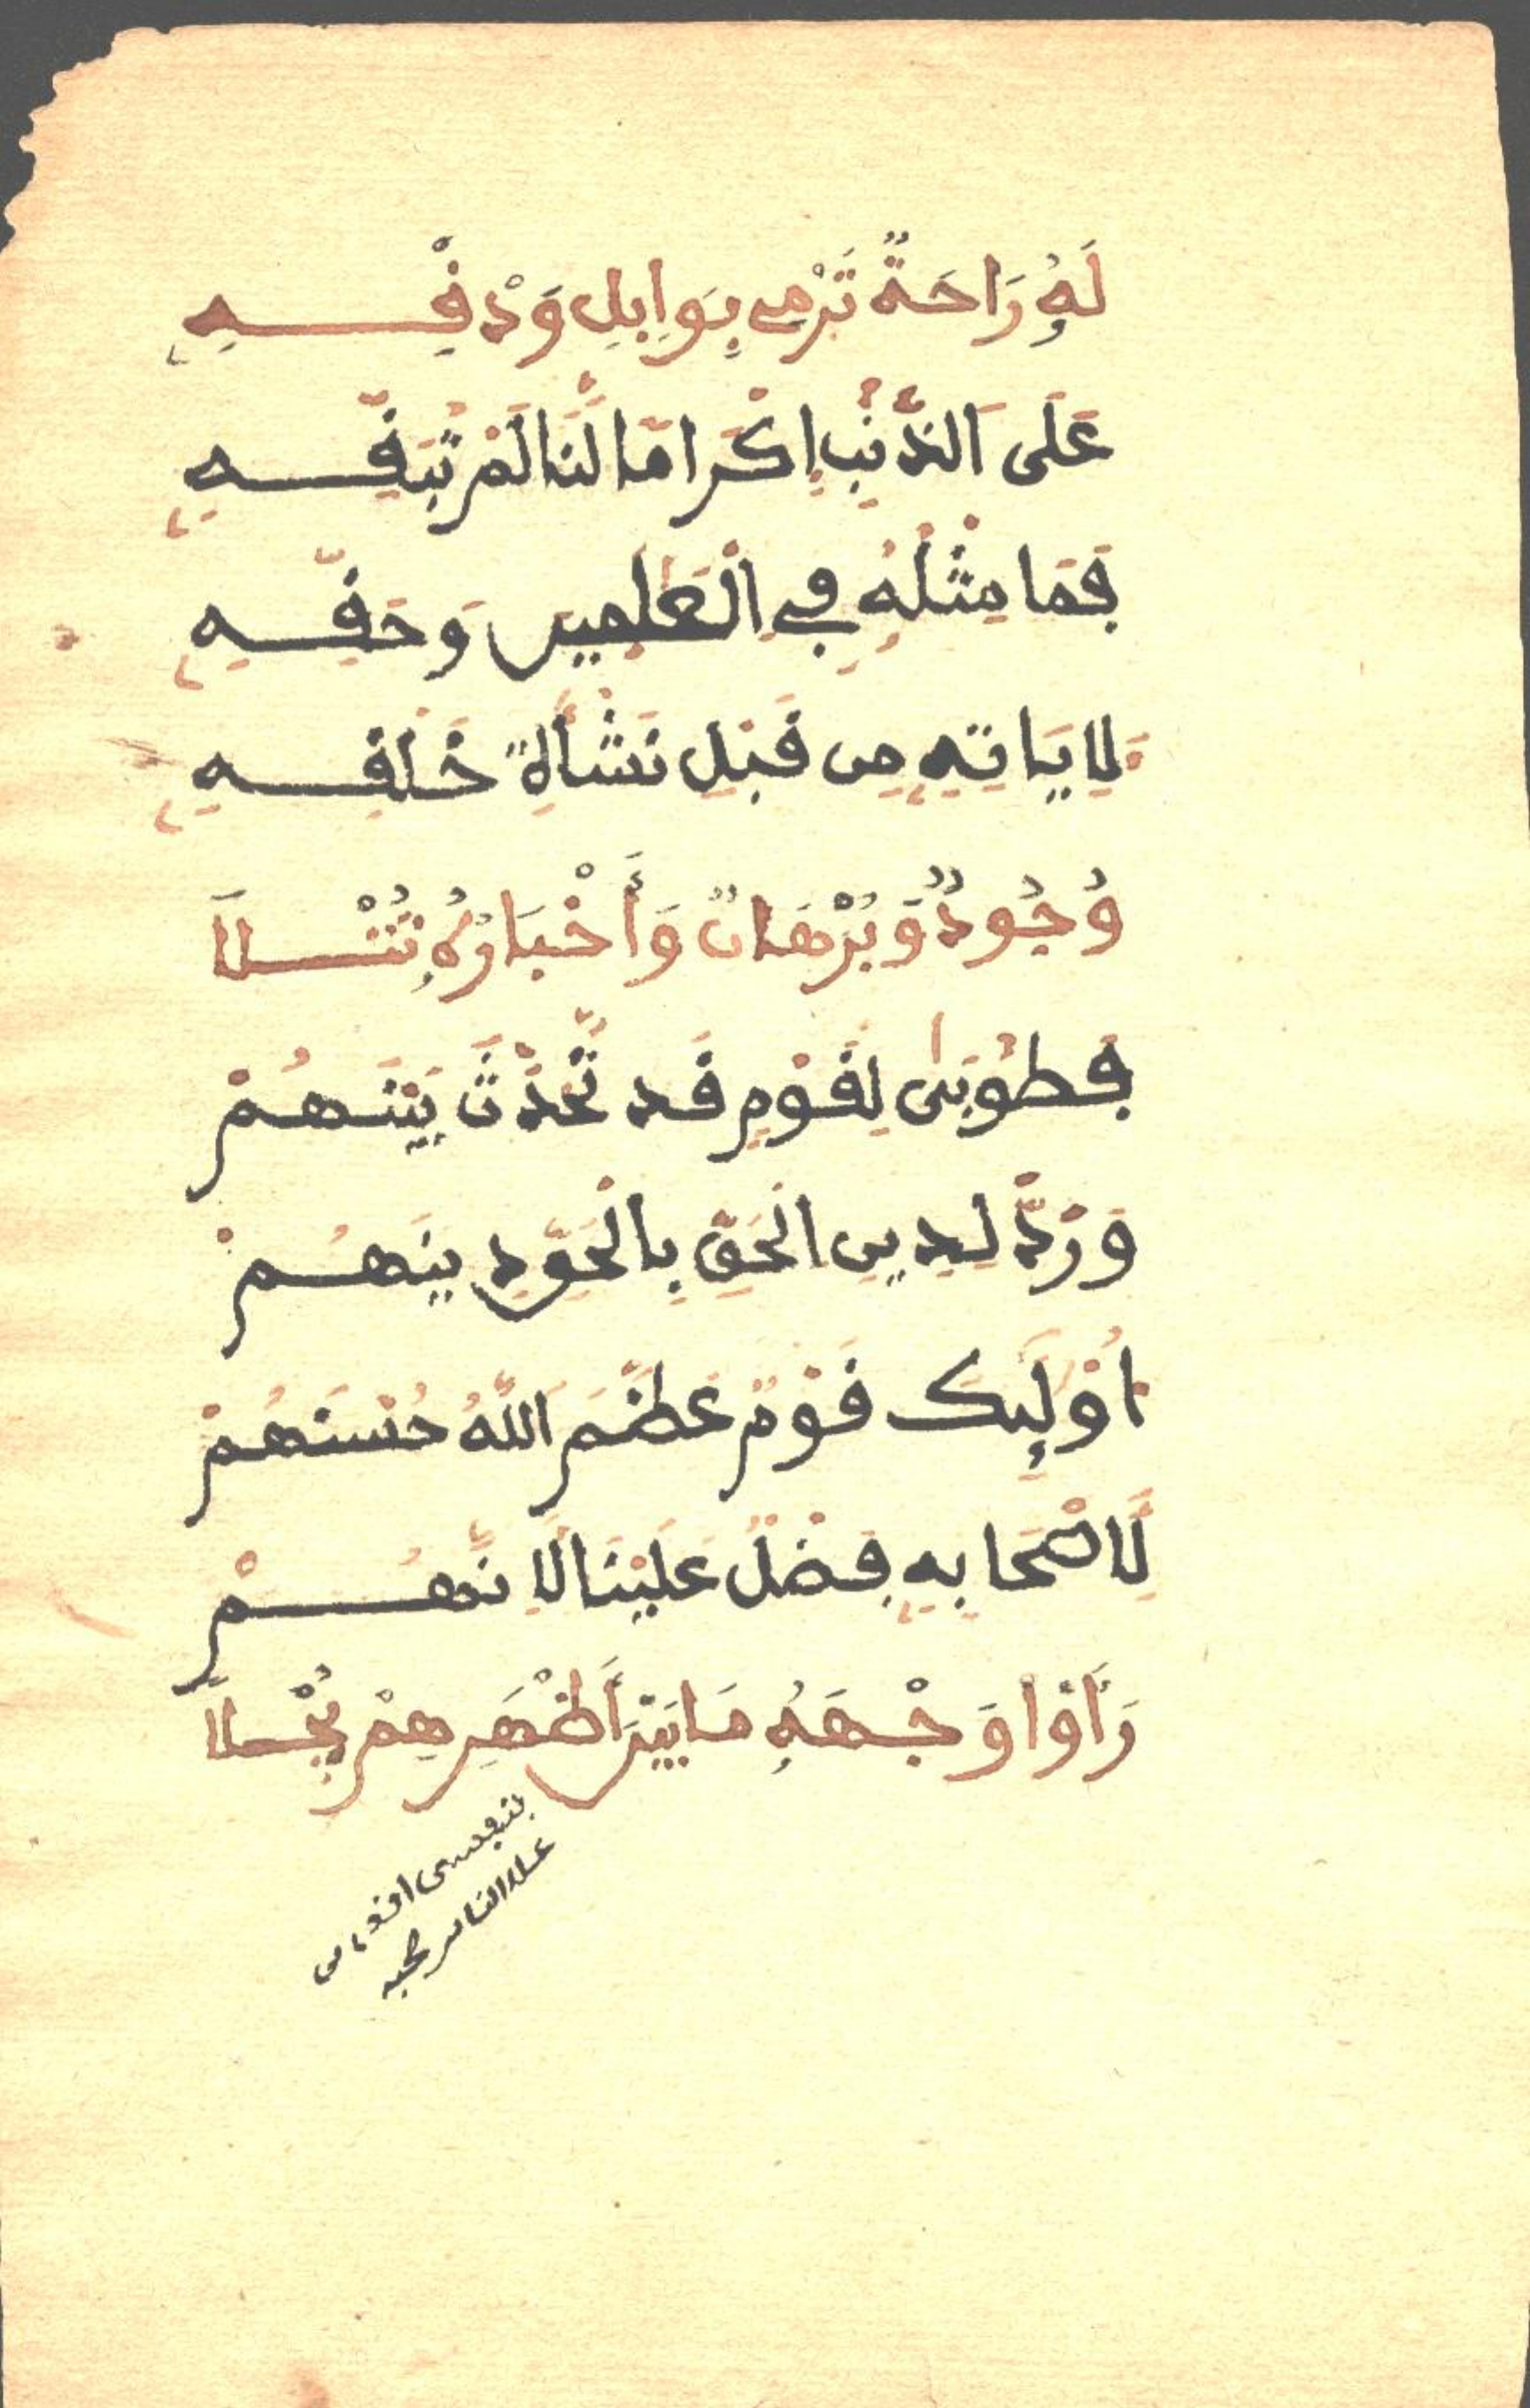 لَهُ رَاحَةٌ تَرْمِي بِوَابِلِ وَدْقِهِ
عَلَى الذَّنْبِ إِكْرَامًا لَّنَا لَمْ تُبَقِّهِ
فَمَا مِثْلُهُ فِي الْعَالَمِينَ وَحَقِّهِ
لِآيَاتِهِ مِن قَبْلِ نَشْأَةِ خَلْقِهِ
وُجُودٌ وَبُرْهَانٌ وَأَخْبَارُهُ تُتْلَا
فَطُوبَى لِقَوْمٍ قَد تَّحَدَّثَ بَيْنَهُمْ
وَرَدَّ لِدِينِ الْحَقِّ بِالْحَقِّ دِينَهُمْ
أُوْلَٰئِكَ قَوْمٌ عَظَّمَ اللَّهُ حُسْنَهُمْ
لِأَصْحَابِهِ فَضْلٌ عَلَيْنَا لِأَنَّهُمْ
رَأَوْا وَجْهَهُ مَا بَيْنَ أَظْهُرِهِمْ يُجْلَا
بنفسى افدى من
على الناس حبه